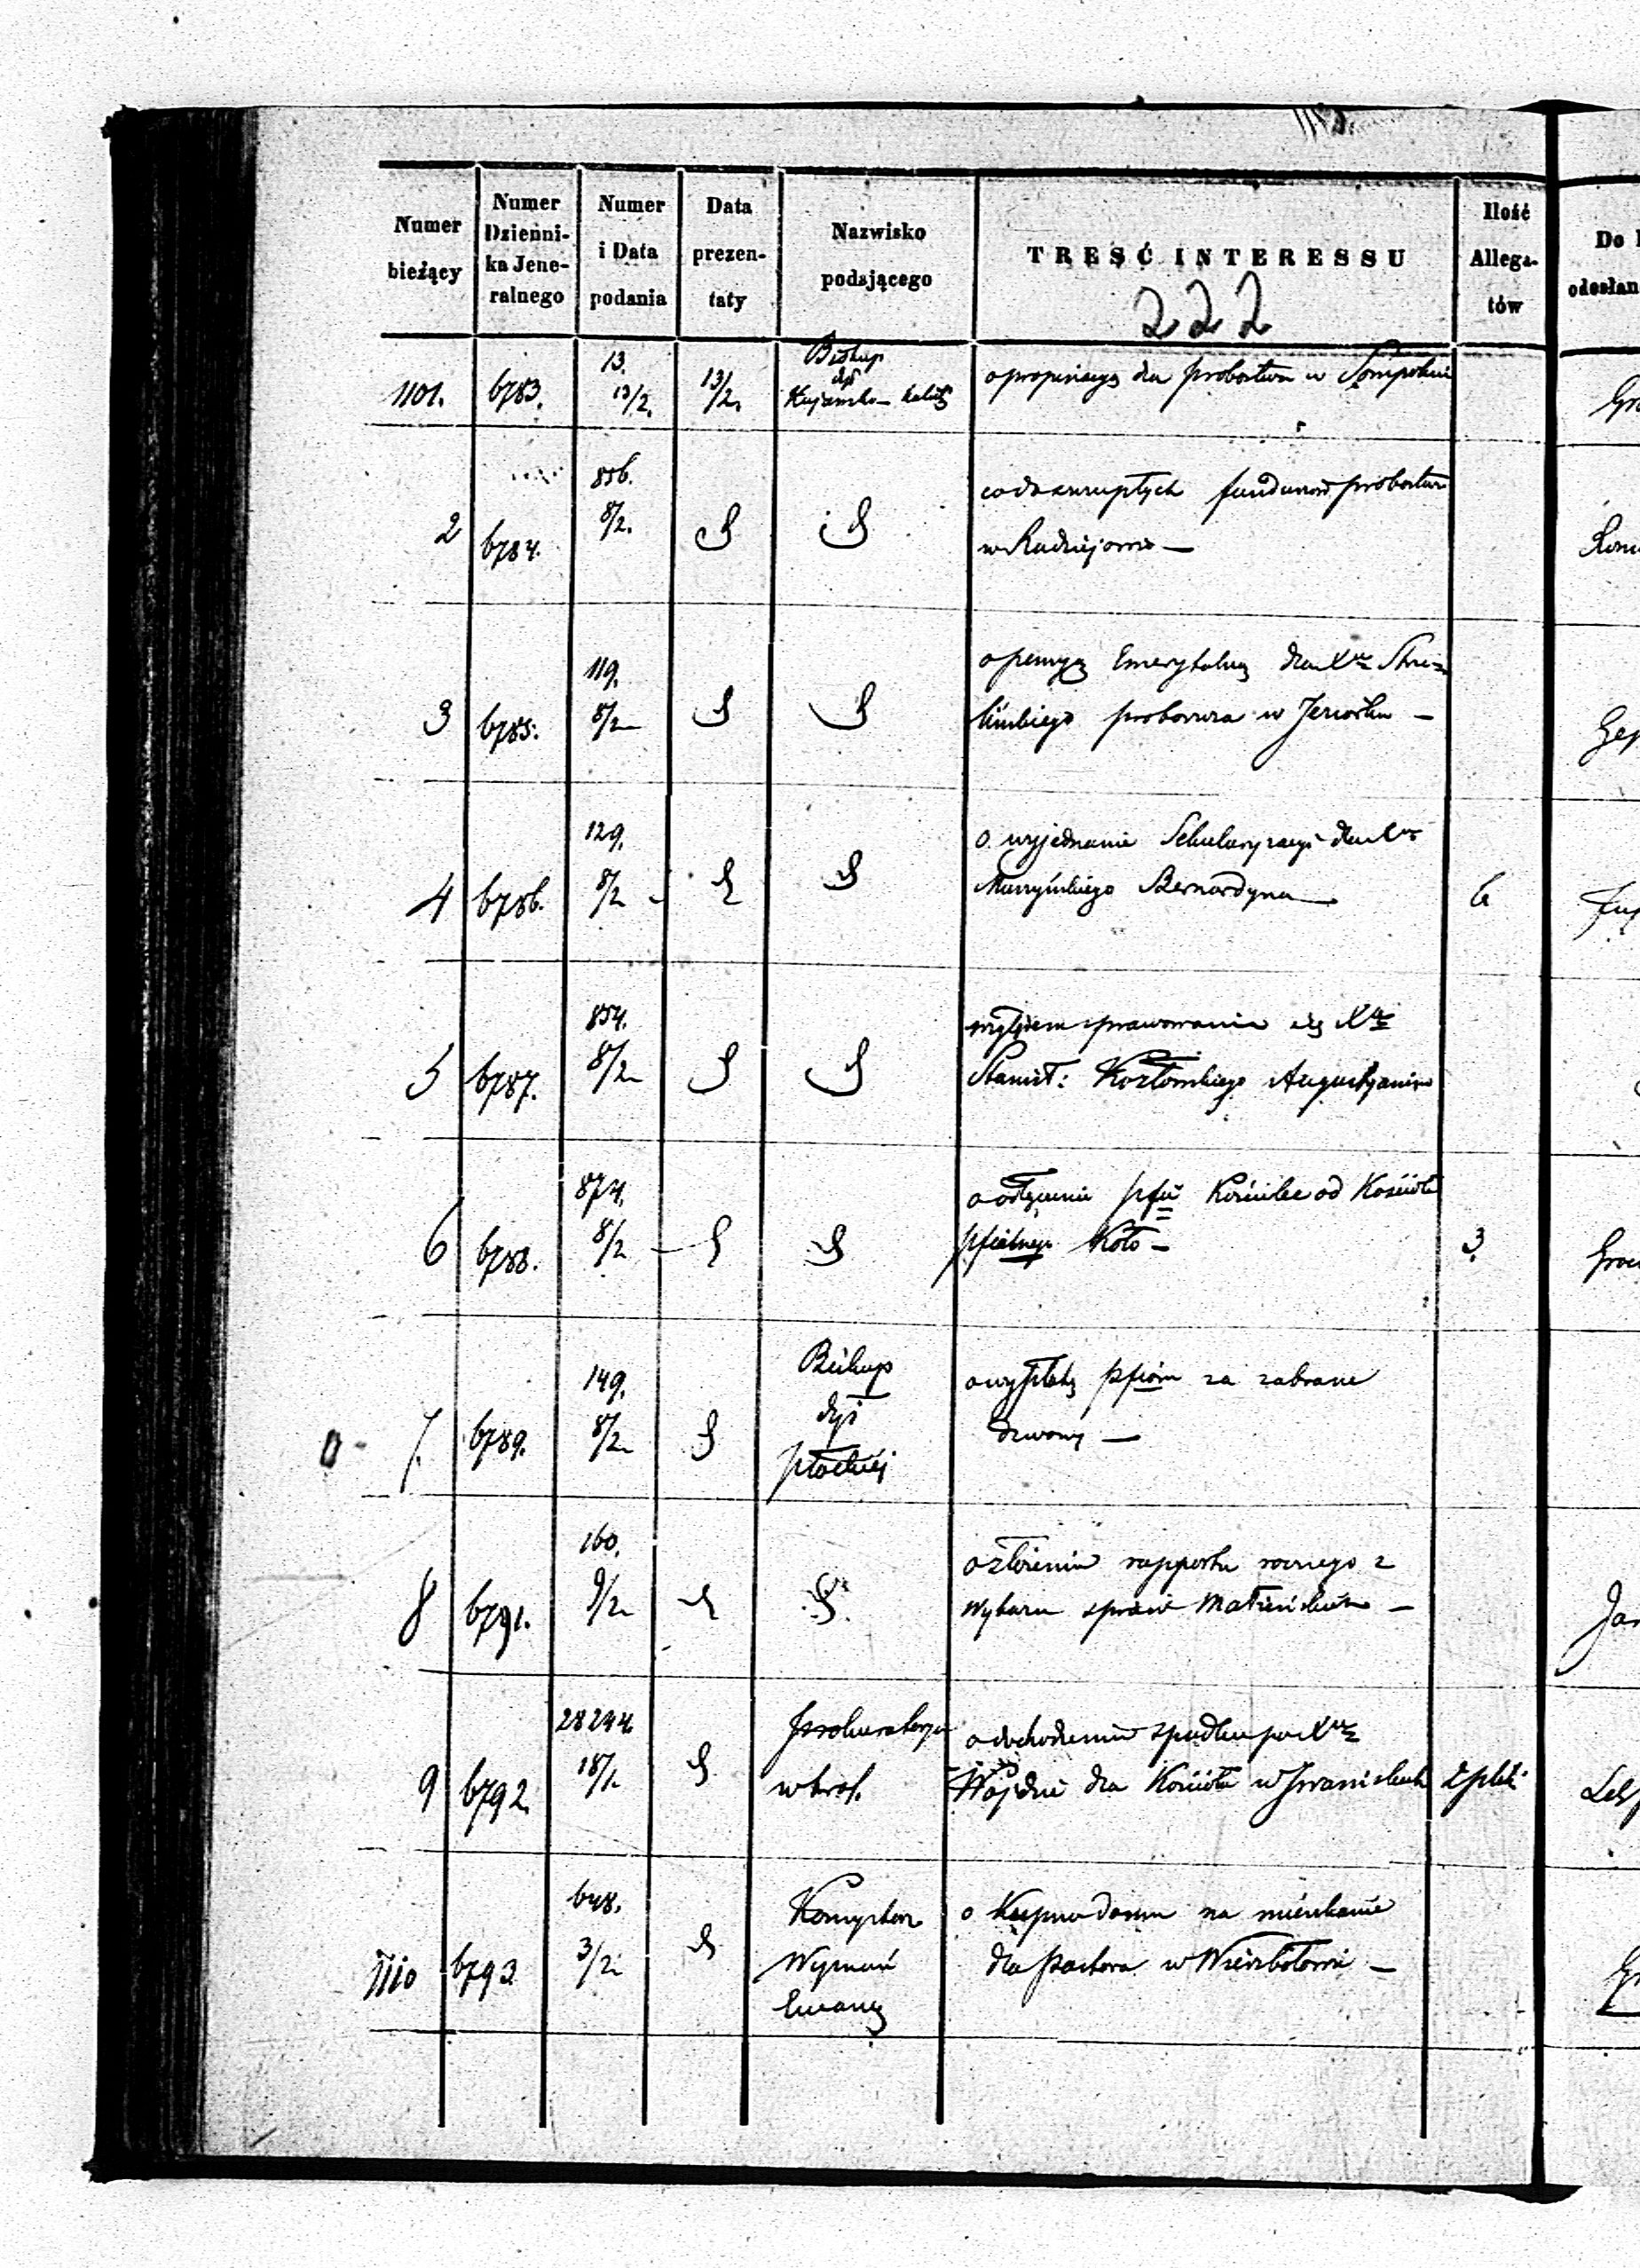 Numer bieżący
Numer Dzienni-ka Jene-ralnego
Numer i Data podania
Data prezen-taty
Nazwisko podającego
TREŚĆ INTERESSU
Ilość Allega-tów
Do
odesłan
222
1101. 6783. 13. 13/2. 13/2. Biskup dyi Kujawsko- kalis o propinacyę dla probostwa w Sompolnie
2 6784. 856. 8/2. funduszów probostwa
w Radziejowie —
3 6785. 119. 8/2 o pensyą Emerytalną dla Xa
proboszcza w Jeziorsku —
4 6786. 129. 8/2 o wyjednanie Sekularyzacyi dla Xa
Murzyńskiego Bernardyna — 6
5 6787. 854. 8/2 względem sprawowania się Xa
Stanisł: Kozłowskiego Augustyanina
6 6788. 874. 8/2 o odłączenie pfii Kościelec od Kościoła
pfialnego Koło — 3
7. 6789. 149. 8/2 Biskup dyi płockiej o wypłatę pfiom za zabrane
dzwony —
8 6791. 160. 9/2 o złożenie rapportu rocznego z
Wykazu spraw Małżeńskich —
9 6792. 28244 18/1. Prokuratorya w król. o dochodzenie spadku po Xu
Wojdzie dla Kościoła w Iwaniskach 2 pliki
1110 6793 648. 3/2 Konsystorz Wyznań Ewang o kupno domu na mieszkanie
dla Pastora w Wierzbołowie —